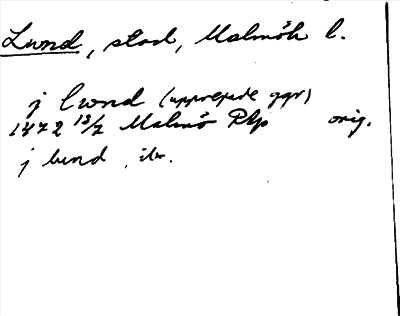 Lund, stad, Malmöh l.
j lwnd (upprepade ggr)
1472 13/2 Malmö Råp orig.
j lund, ib.